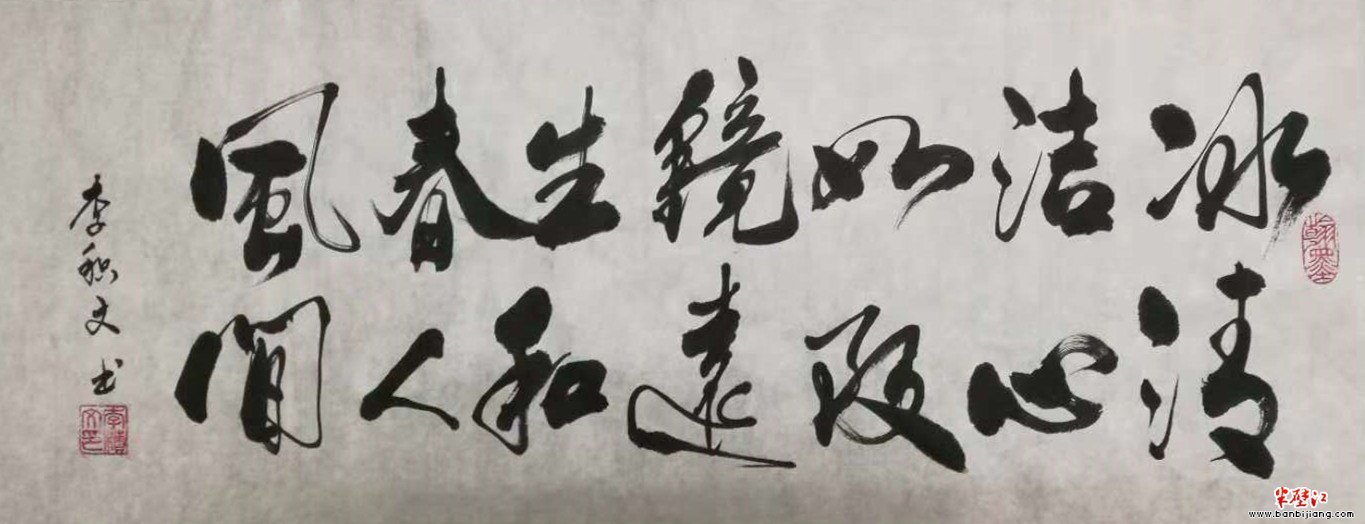 冰洁如鏡生春風
清心致遠和人間
李积文书
翰墨
半壁江
www.banbijiang.com